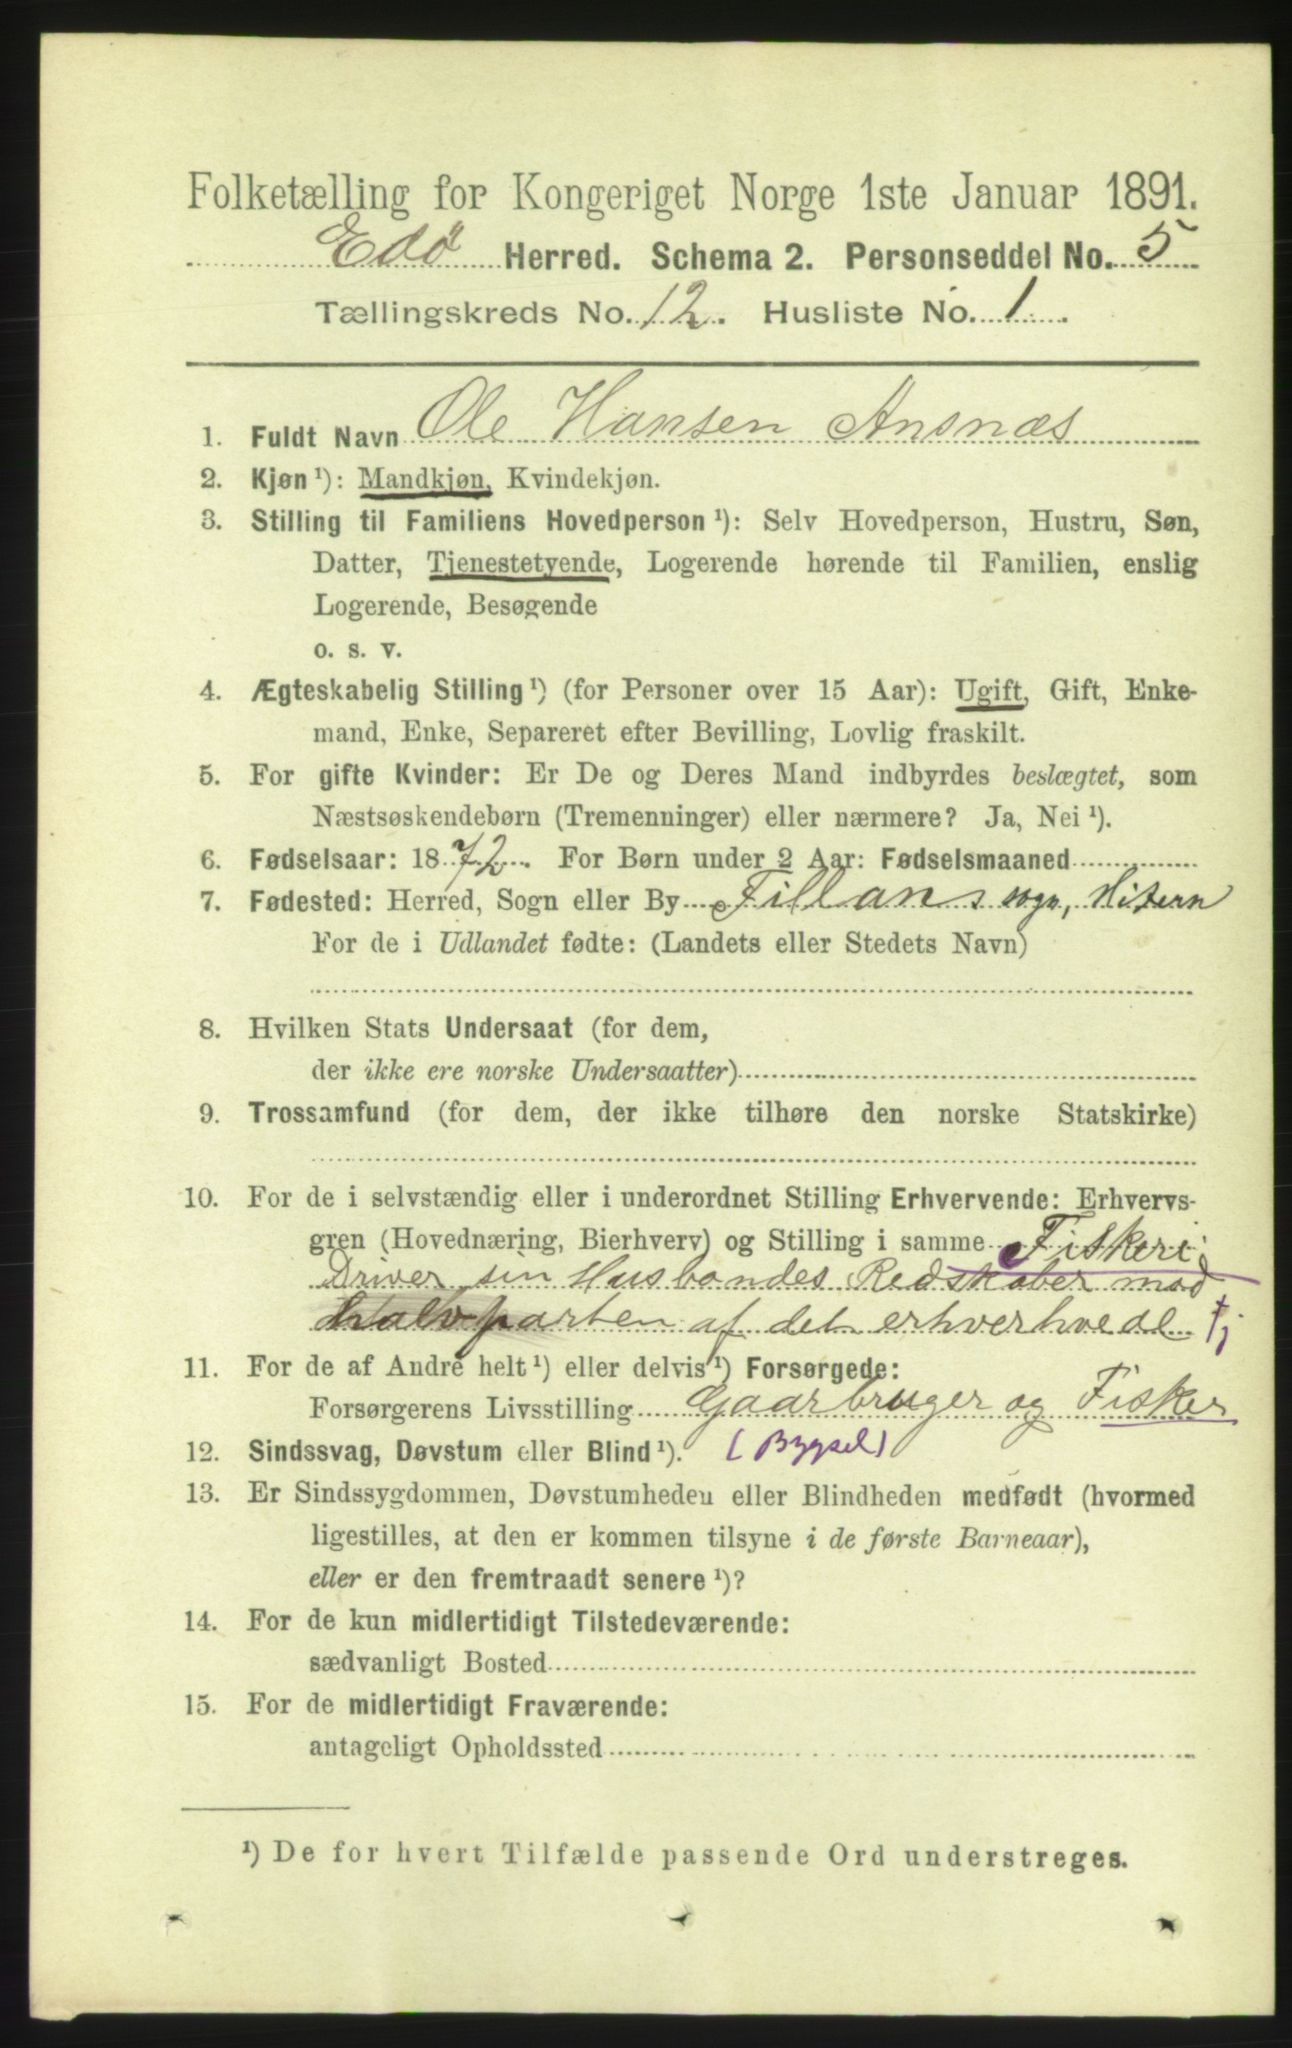 Folketælling for Kongeriget Norge 1ste Januar 1891.
Edö Herred. Schema 2. Personseddel No. 5
Tællingskreds No. 12. Husliste No. 1.
1. Fuldt Navn Ole Hansen Ansnæs
2. Kjøn ¹): Mandkjøn, Kvindekjøn.
3. Stilling til Familiens Hovedperson ¹): Selv Hovedperson, Hustru, Søn,
Datter, Tjenestetyende, Logerende hørende til Familien, enslig
Logerende, Besøgende
o. s. v.
4. Ægteskabelig Stilling ¹) (for Personer over 15 Aar): Ugift, Gift, Enke-
mand, Enke, Separeret efter Bevilling, Lovlig fraskilt.
5. For gifte Kvinder: Er De og Deres Mand indbyrdes beslægtet, som
Næstsøskendebørn (Tremenninger) eller nærmere? Ja, Nei ¹).
6. Fødselsaar: 1872. For Børn under 2 Aar: Fødselsmaaned
7. Fødested: Herred, Sogn eller By Fillans sogn, Hitern
For de i Udlandet fødte: (Landets eller Stedets Navn)
8. Hvilken Stats Undersaat (for dem,
der ikke ere norske Undersaatter)
9. Trossamfund (for dem, der ikke tilhøre den norske Statskirke)
10. For de i selvstændig eller i underordnet Stilling Erhvervende: Erhvervs-
gren (Hovednæring, Bierhverv) og Stilling i samme Fiskeri;
Driver sin Husbondes Redskaber mod
halvparten af det erhverhvede tj
11. For de af Andre helt ¹) eller delvis ¹) Forsørgede:
Forsørgerens Livsstilling Gaarbruger og Fisker
12. Sindssvag, Døvstum eller Blind ¹). (Bygsel)
13. Er Sindssygdommen, Døvstumheden eller Blindheden medfødt (hvormed
ligestilles, at den er kommen tilsyne i de første Barneaar),
eller er den fremtraadt senere ¹)?
14. For de kun midlertidigt Tilstedeværende:
sædvanligt Bosted
15. For de midlertidigt Fraværende:
antageligt Opholdssted
¹) De for hvert Tilfælde passende Ord understreges.